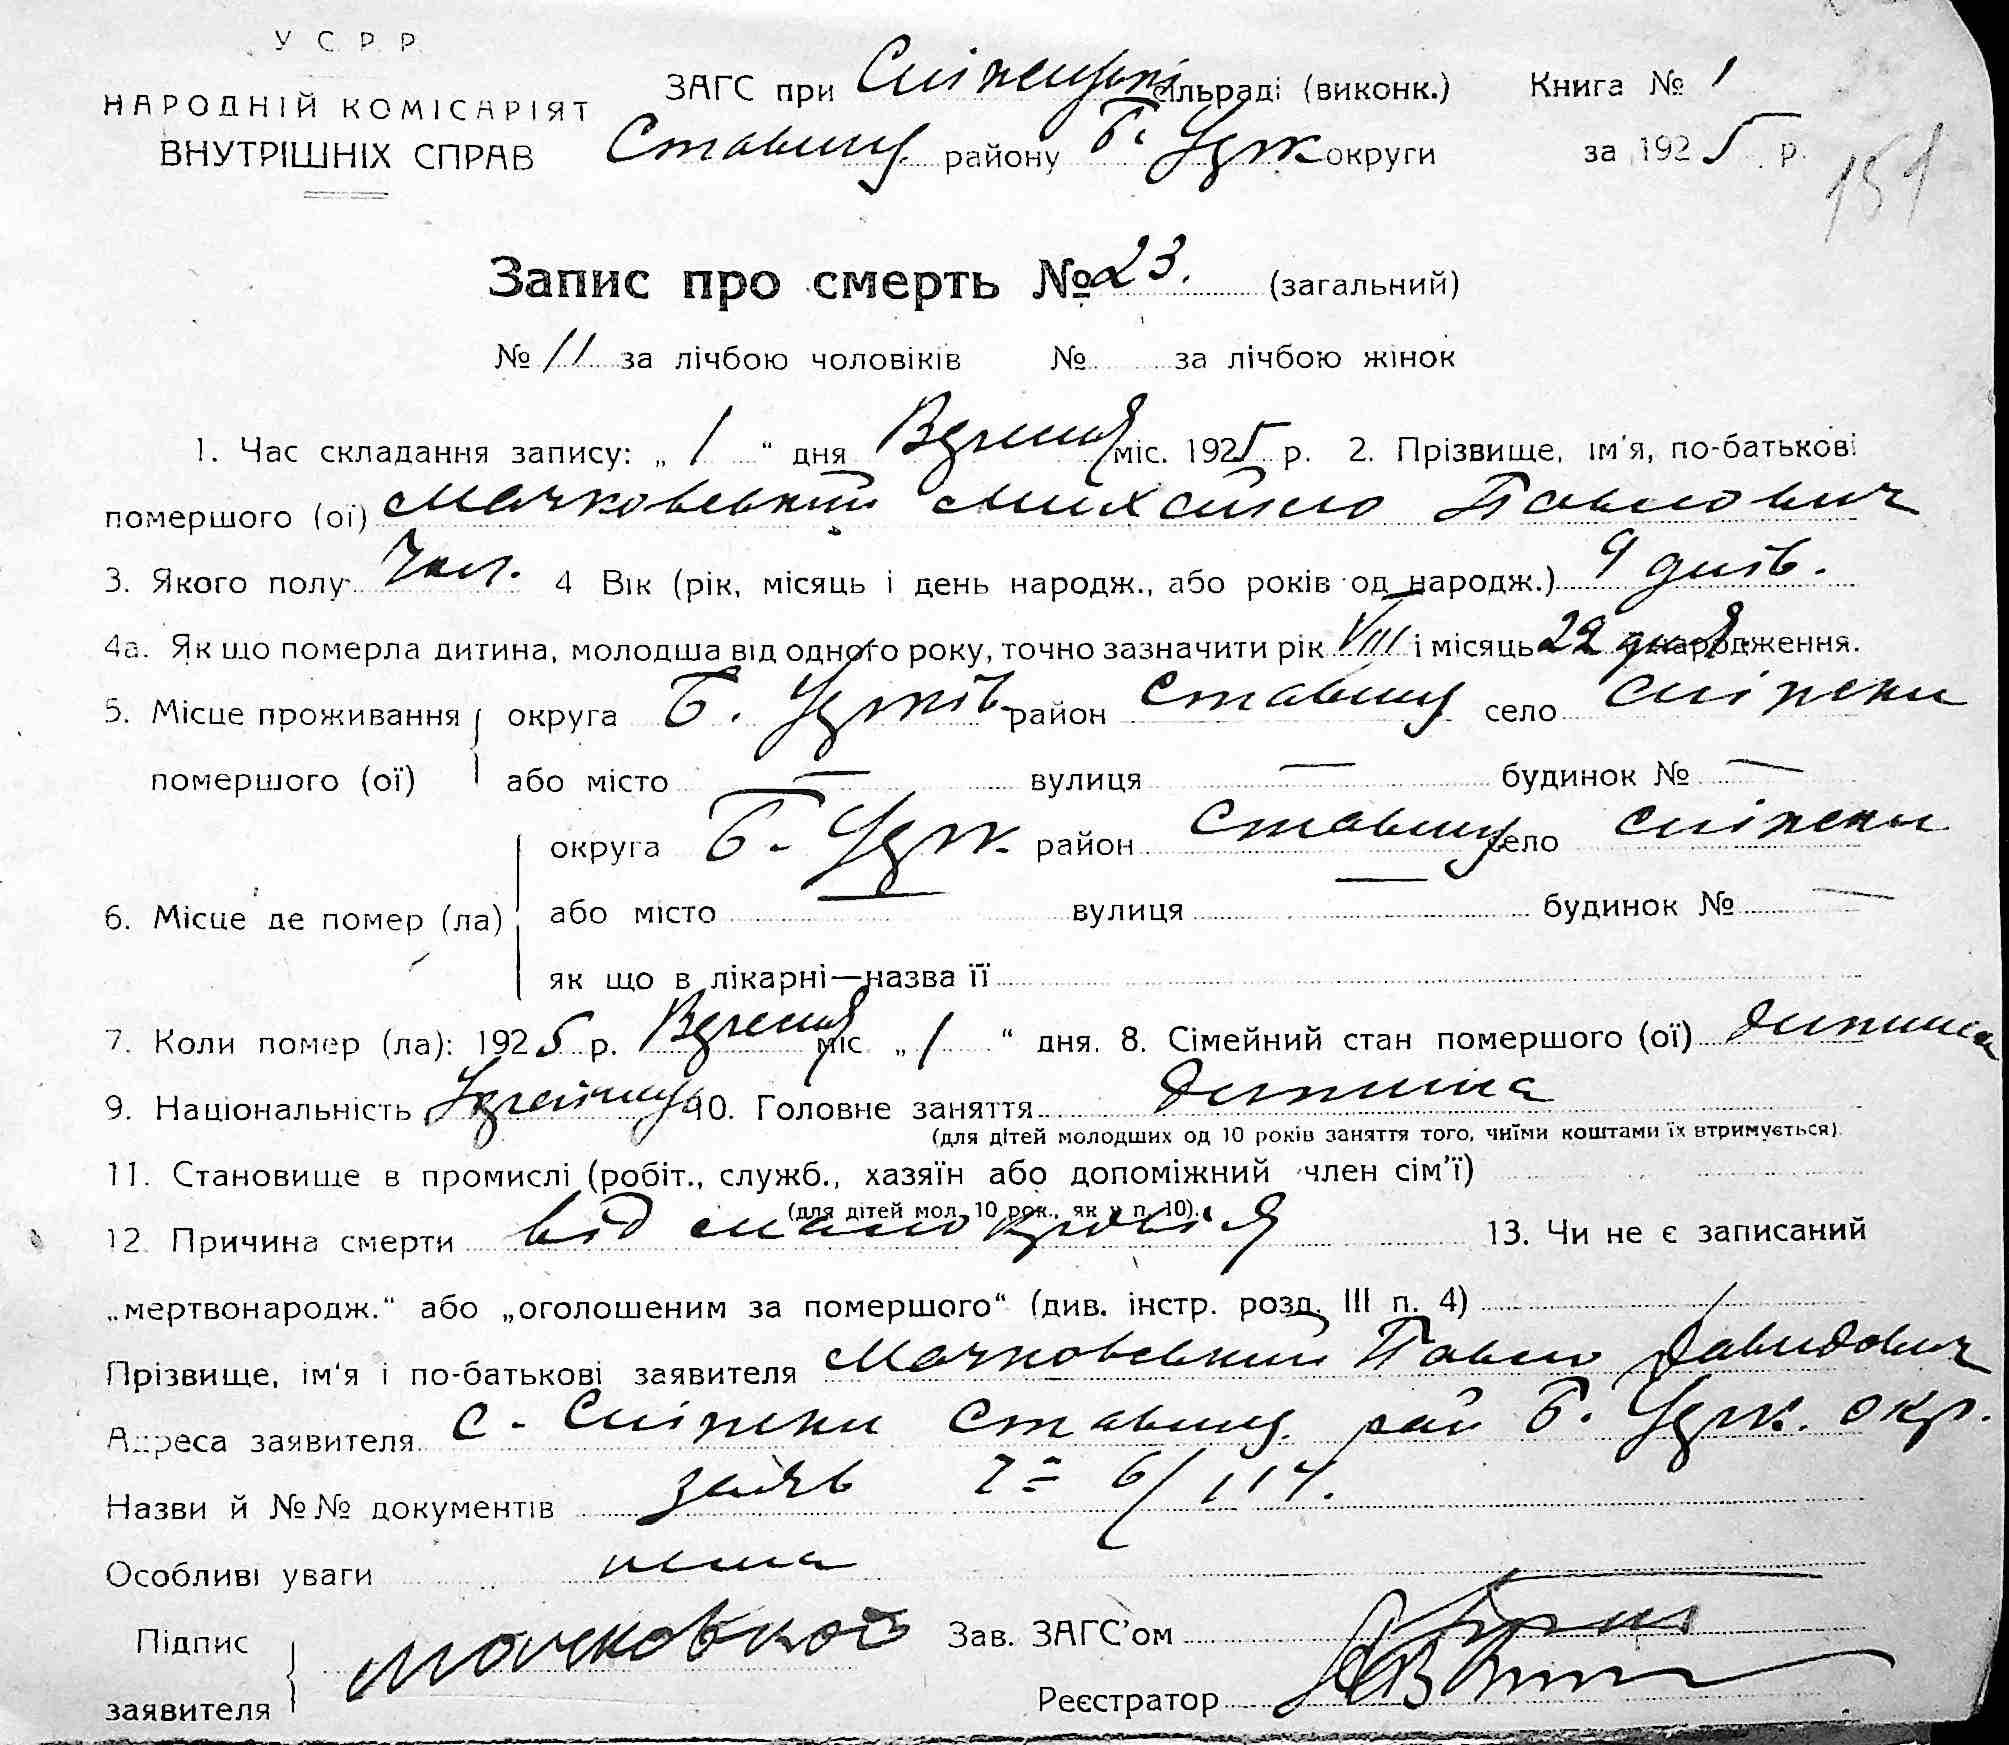 У С Р Р
НАРОДНІЙ КОМІСАРІЯТ
ВНУТРІШНІХ СПРАВ
ЗАГС при сільраді (виконк.) Книга № 1
Ставищ. району Б. округи за 1925 р.
151
Запис про смерть № 23. (загальний)
№ 11 за лічбою чоловіків № за лічбою жінок
1. Час складання запису: „ 1 “ дня Вересня міс. 1925 р. 2. Прізвище, ім'я, по-батькові
помершого (ої) Мачковський Михайло Павлович
3. Якого полу Чол. 4 Вік (рік, місяць і день народж., або років од народж.) 9 днів.
4а. Як що померла дитина, молодша від одного року, точно зазначити рік VIII і місяць 22 дня народження.
5. Місце проживання округа Б. район Ставищ село Сніжки
помершого (ої) або місто — вулиця — будинок № —
округа Б. район Ставищ село Сніжки
6. Місце де помер (ла) або місто — вулиця — будинок № —
як що в лікарні—назва її
7. Коли помер (ла): 1925 р. Вересня міс. „ 1 “ дня. 8. Сімейний стан помершого (ої) дитина
9. Національність 10. Головне заняття дитина
(для дітей молодших од 10 років заняття того, чиїми коштами їх втримується).
11. Становище в промислі (робіт., служб., хазяїн або допоміжний член сім'ї)
(для дітей мол. 10 рок., як у п. 10).
12. Причина смерти від малокровія 13. Чи не є записаний
„мертвонародж.“ або „оголошеним за помершого“ (див. інстр. розд. III п. 4)
Прізвище, ім'я і по-батькові заявителя Мачковський Павло Давидович
Адреса заявителя с. Сніжки Ставищ. рай Б. окр.
Назви й №№ документів
Особливі уваги нема
Підпис Зав. ЗАГС'ом
заявителя Реєстратор